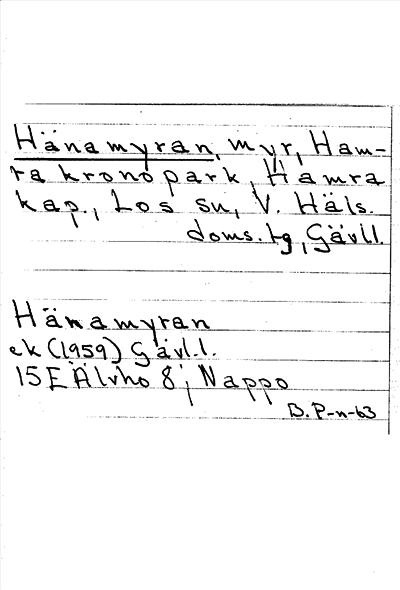 Hänamyran, myr, Ham-
ra kronopark, Hamra
kap., Los sn, V. Häls.
doms. tg, Gävl.l.
Hänamyran
ek (1959) Gävl.l.
15E Älvho 8; Nappo
B. P-n-63